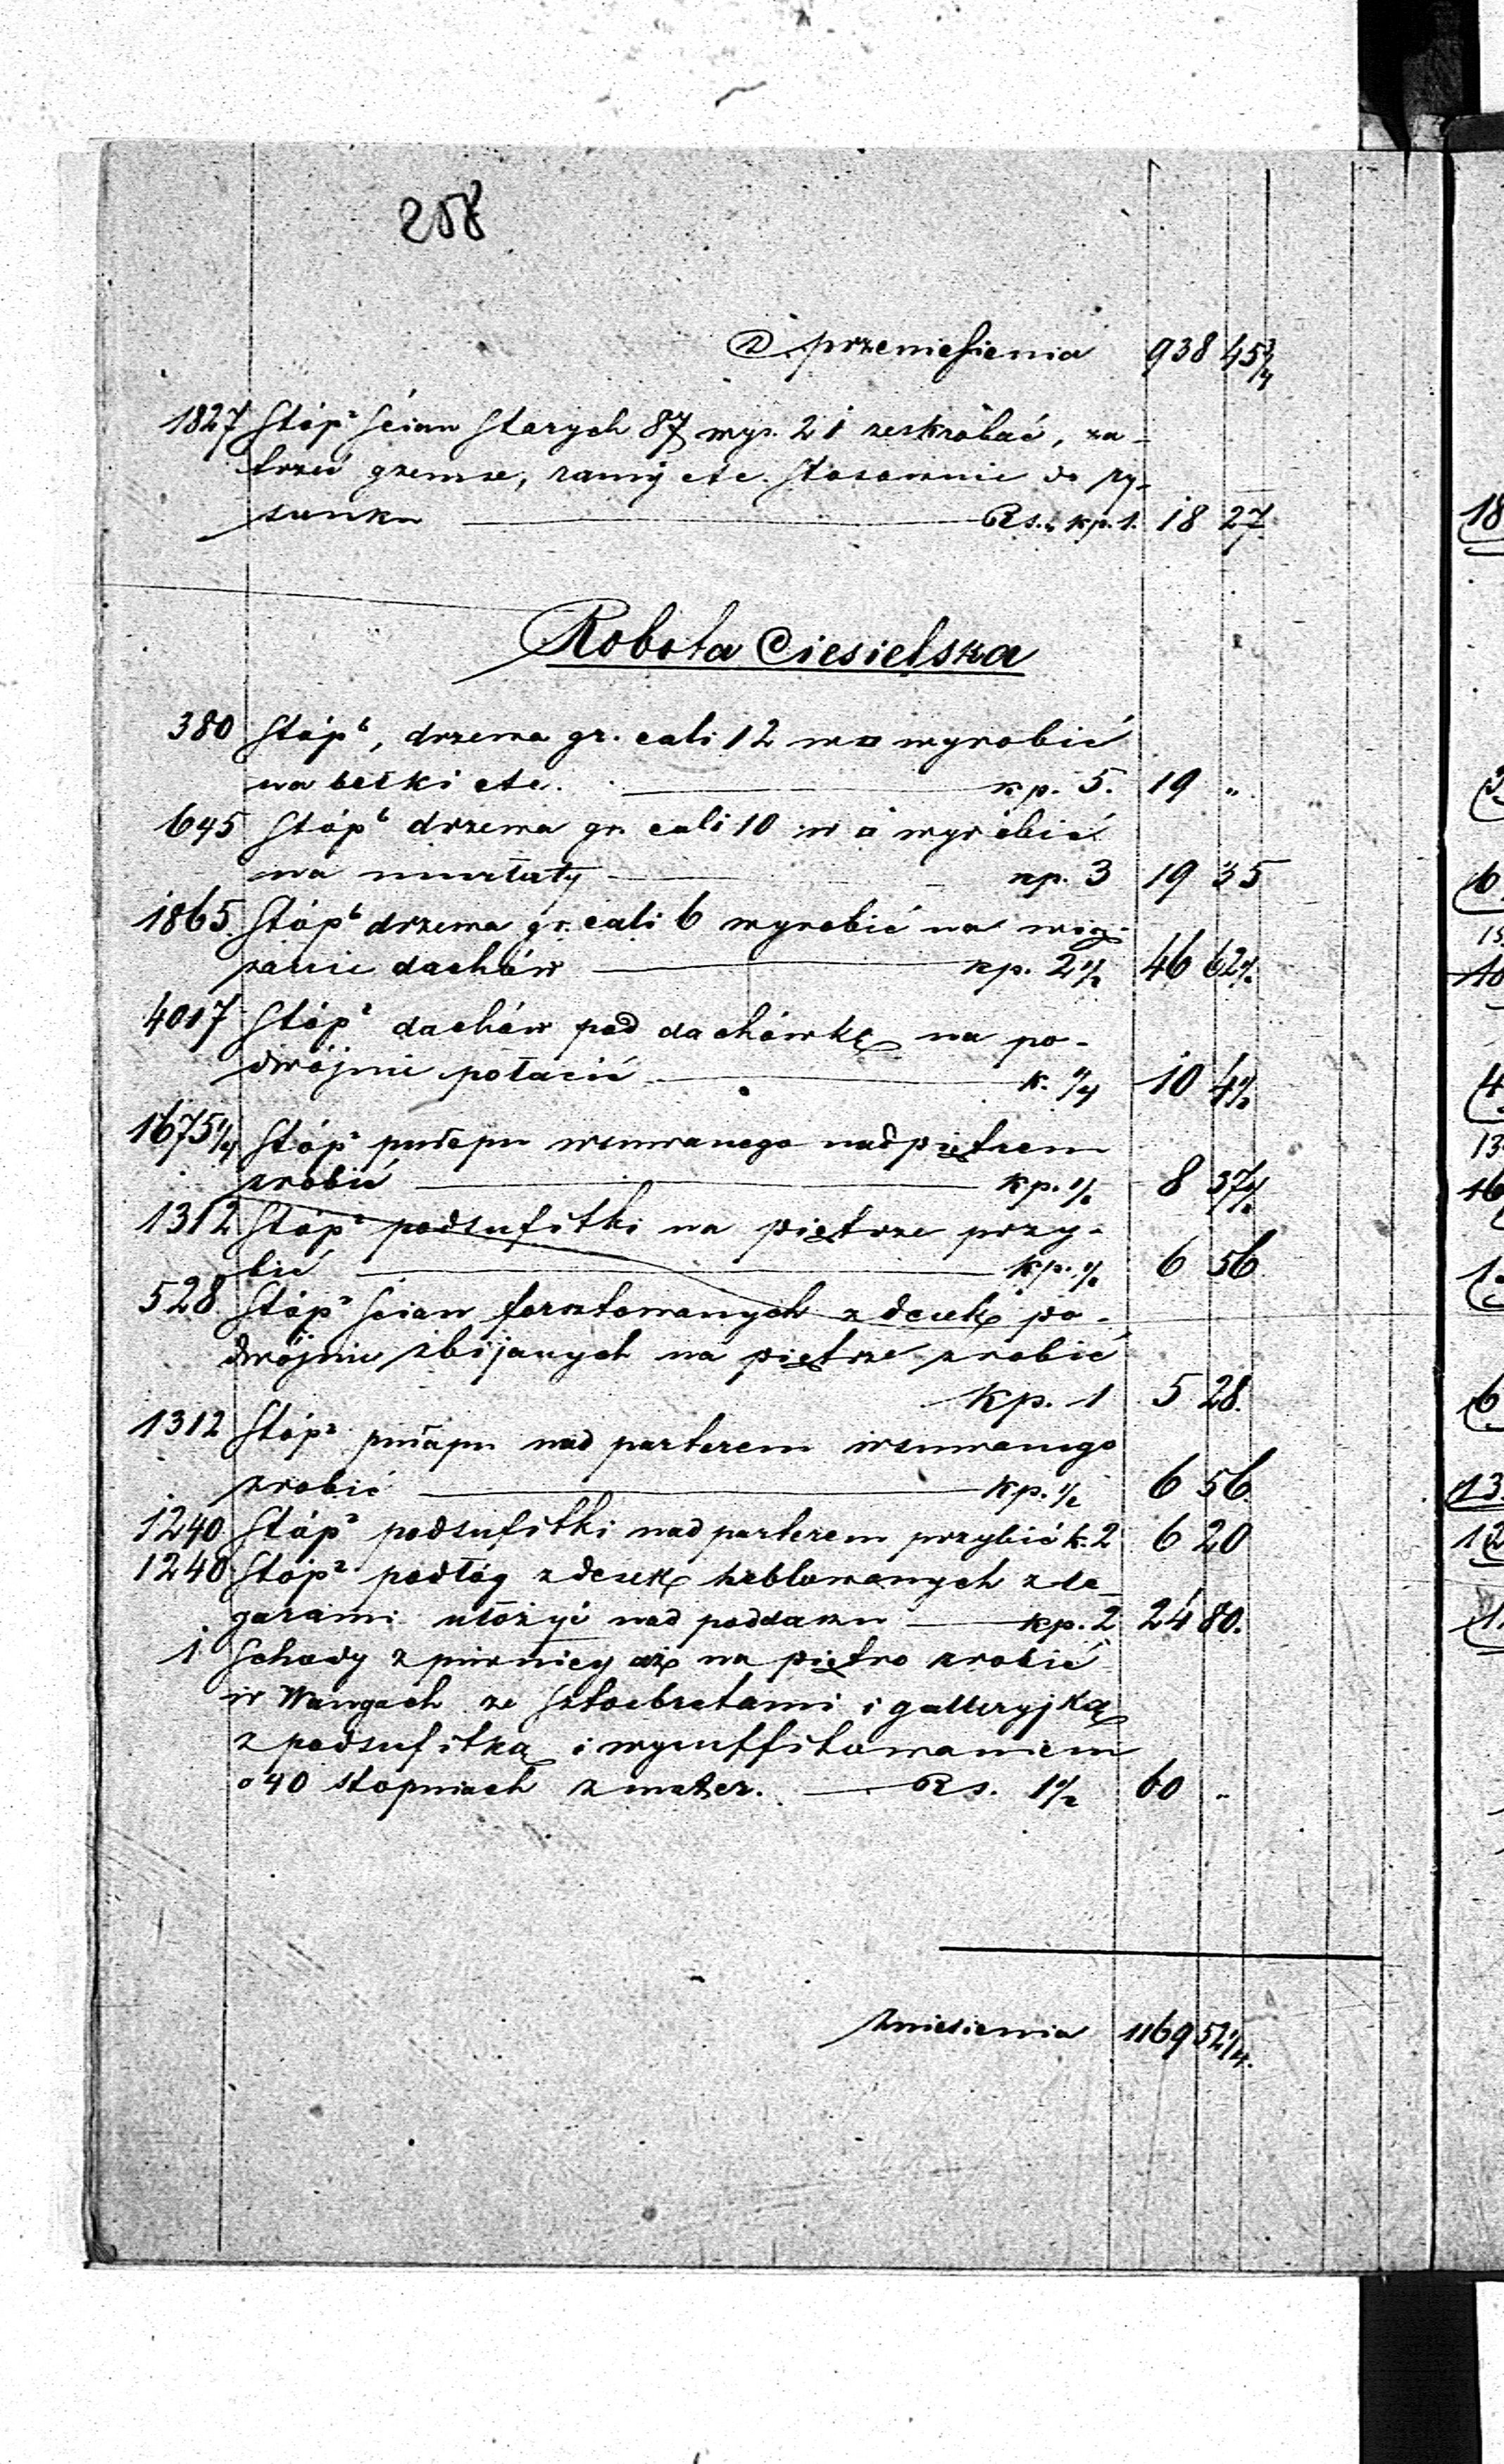 258
Z przeniesienia 938 45 3/4
1827 Stóp² ścian starych 87 wys. 21 zeskrobać, za-
trzeć gzemse, ramy etc. stosownie do ry-
sunku Rs. „ kp. 1. 18 27
Robota Ciesielska
380 Stóp⁶, drzewa gr. cali 12 w □ wyrobić
na belki etc. kp. 5. 19 „
645 Stóp⁶ drzewa gr. cali 10 w □ wyrobić
na murłaty kp. 3 19 35
1865 Stóp⁶ drzewa gr. cali 6 wyrobić na wią-
zanie dachów kp. 2 1/2 46 62 1/2
4017 Stóp² dachów pod dachówkę na po-
dwójnie połacić k. 1/4 10 4 1/2
1675 1/4 Stóp² pułapu wsuwanego nad piętrem
zrobić kp. 1/2 8 37 1/2
1312 Stóp² podsufitki na piętrze przy-
bić kp. 1/2 6 56
528 Stóp² ścian forsztowanych z desek po-
dwójnie zbijanych na piętrze zrobić
kp. 1 5 28.
1312 Stóp² pułapu nad parterem wsuwanego
zrobić kp. 1/2 6 56.
1240 Stóp² podsufitki nad parterem przybić k. 2 6 20
1240 Stóp² podłóg z desek heblowanych z le-
garami ułożyć nad poddaszu kp. 2 24 80.
1 Schody z piwnicy aż na piętro zrobić
w Wangach ze sztocbretami i galleryjką
z podsufitką i wysuffitowaniem
o 40 stopniach z mater. Rs. 1 1/2 60 „
Zniesienia 1169 52 1/4.